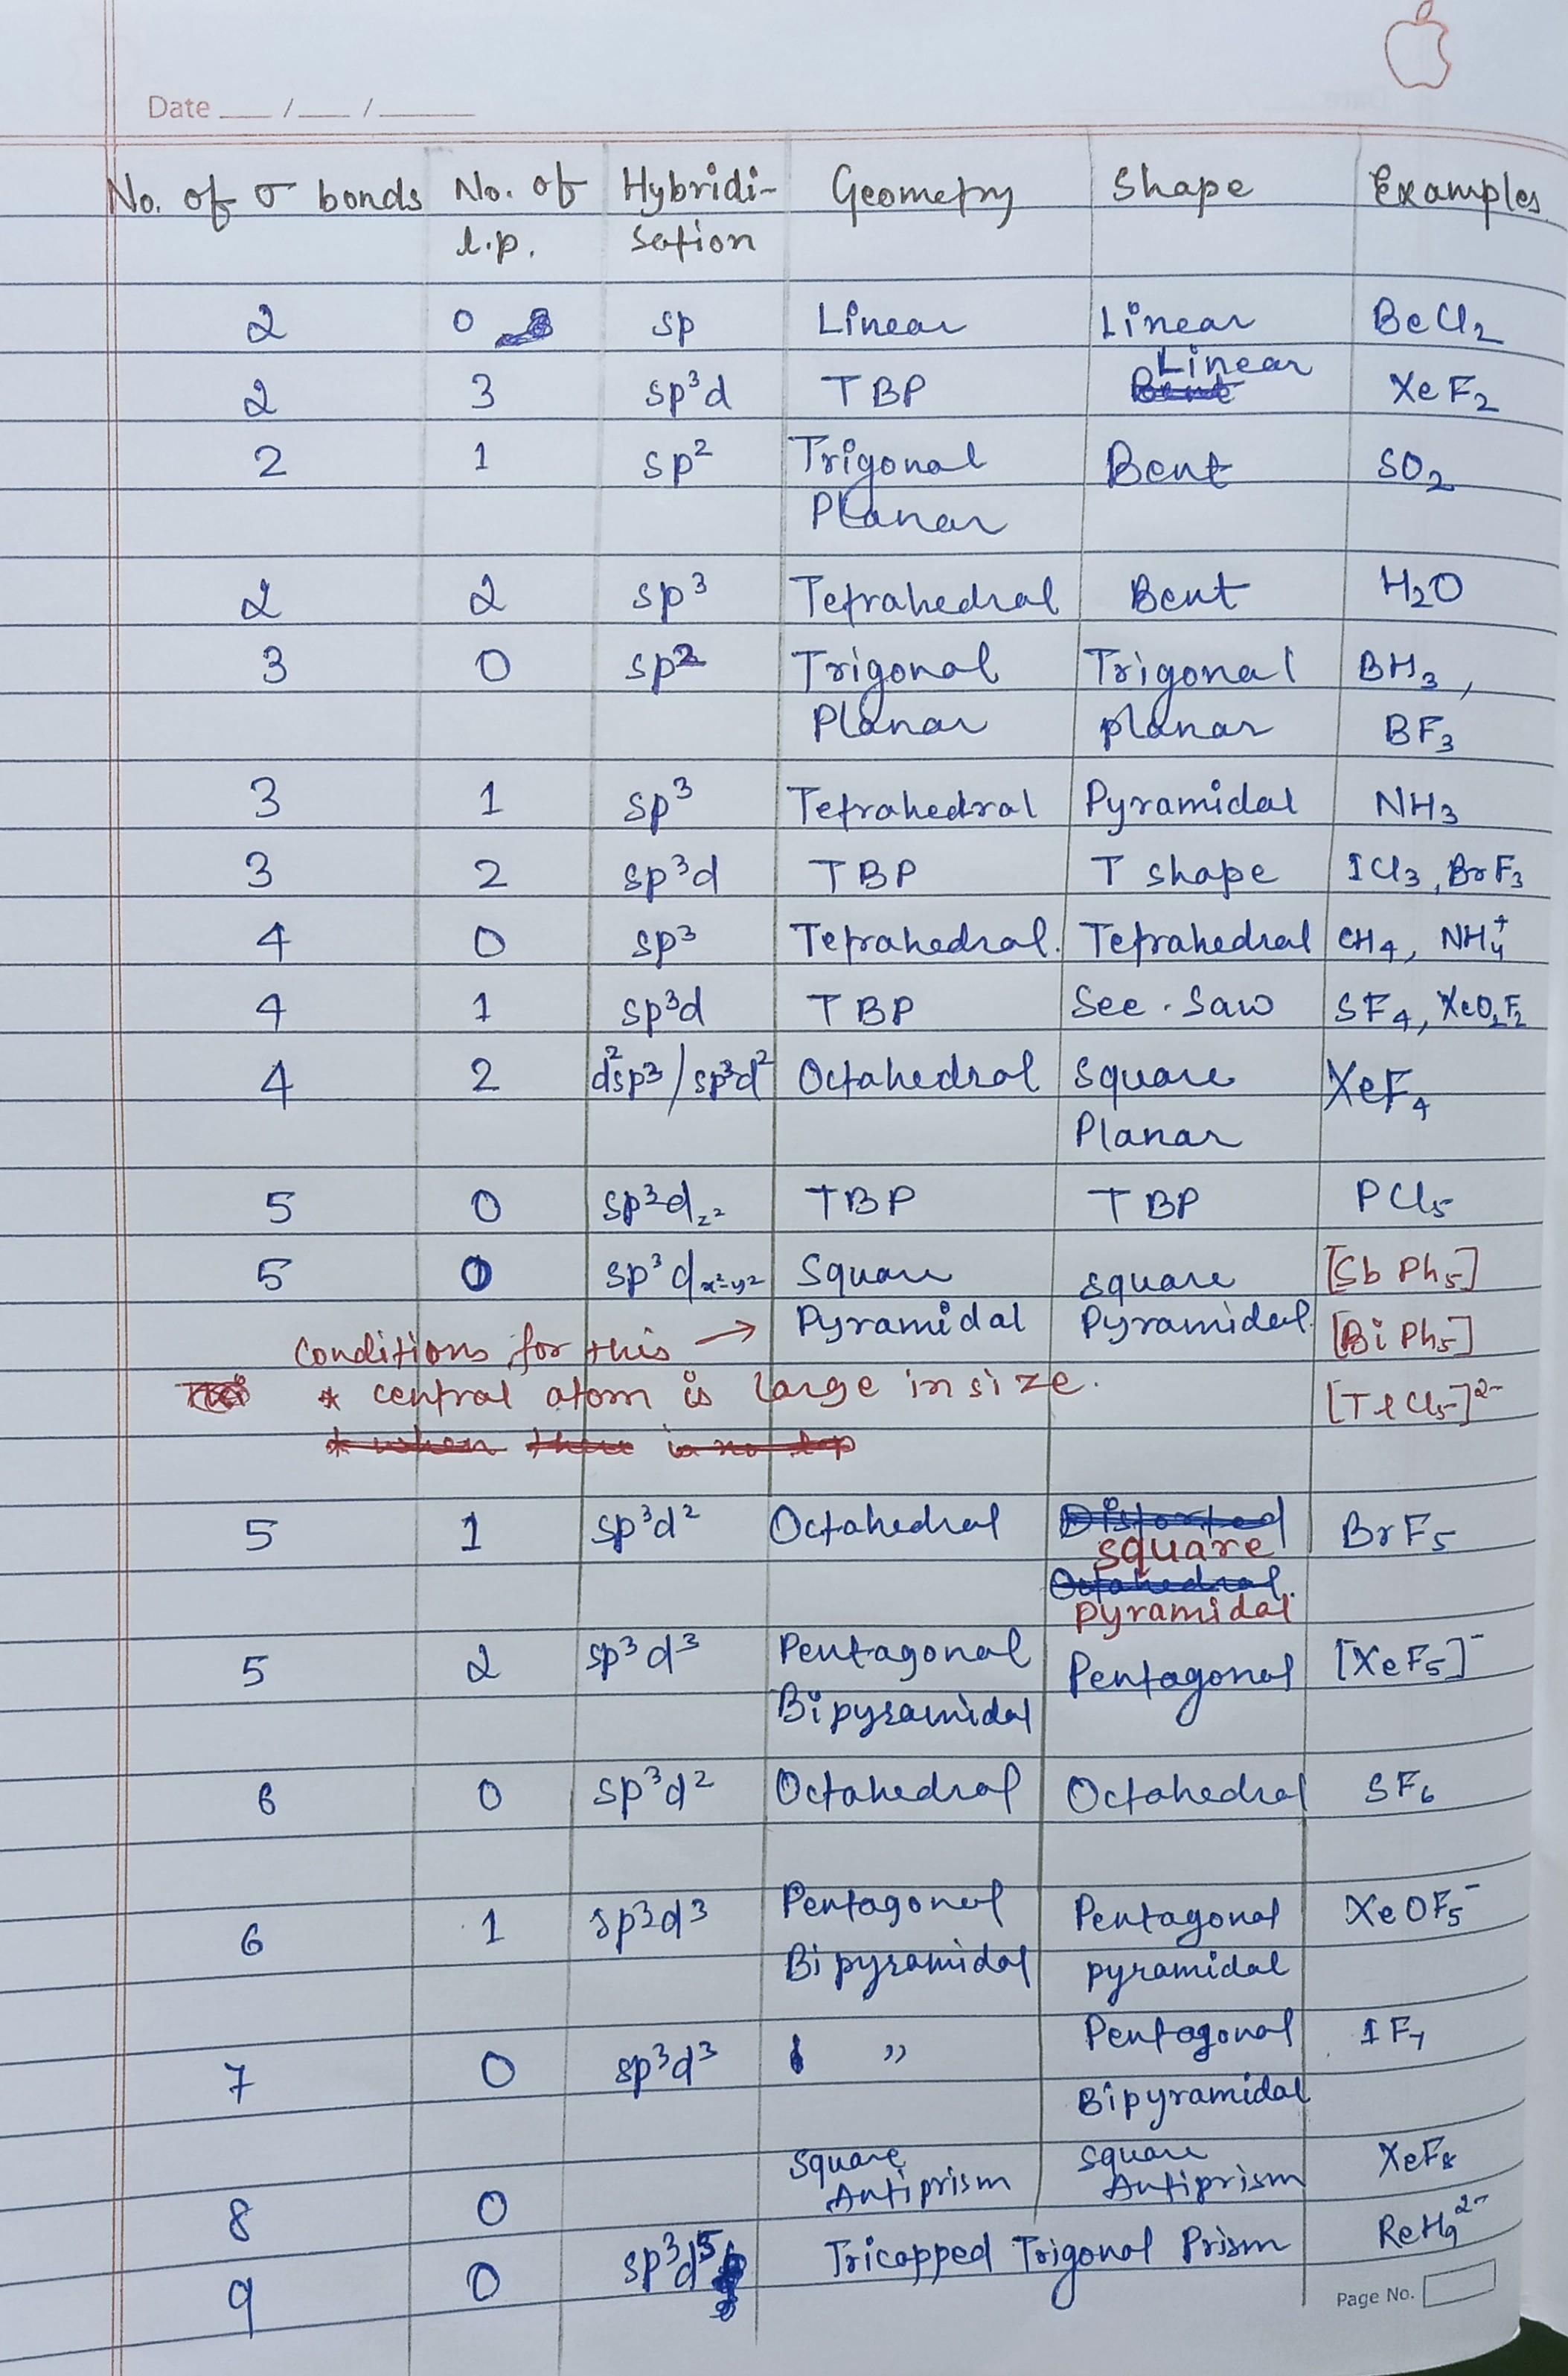 Date ___ /___ /______
No. of σ bonds No. of l.p. Hybridi-sation Geometry Shape Examples
2 0 sp Linear Linear BeCl₂
2 3 sp³d TBP Linear XeF₂
2 1 sp² Trigonal Planar Bent SO₂
2 2 sp³ Tetrahedral Bent H₂O
3 0 sp² Trigonal Planar Trigonal planar BH₃, BF₃
3 1 sp³ Tetrahedral Pyramidal NH₃
3 2 sp³d TBP T shape ICl₃, BrF₃
4 0 sp³ Tetrahedral. Tetrahedral CH₄, NH₄⁺
4 1 sp³d TBP See-Saw SF₄, XeO₂F₂
4 2 d²sp³/sp³d² Octahedral Square Planar XeF₄
5 0 sp³d_z² TBP TBP PCl₅
5 0 sp³d_x²-y² Square Pyramidal square Pyramidal [Sb Ph₅]
[Bi Ph₅]
[TlCl₅]²⁻
Conditions for this →
* central atom is large in size.
* when there is no lp
5 1 sp³d² Octahedral Distorted Octahedral. square pyramidal BrF₅
5 2 sp³d³ Pentagonal Bipyramidal Pentagonal [XeF₅]⁻
6 0 sp³d² Octahedral Octahedral SF₆
6 1 sp³d³ Pentagonal Bipyramidal Pentagonal pyramidal XeOF₅⁻
7 0 sp³d³ " Pentagonal Bipyramidal IF₇
8 0 Square Antiprism square Antiprism XeF₈
9 0 sp³d⁵ Tricapped Trigonal Prism ReH₉²⁻
Page No.